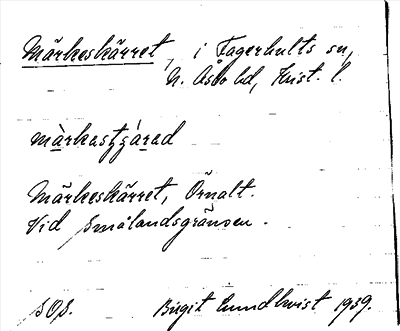 Märkeskärret, i Fagerhults sn,
N. Åsbo hd, Krist. l.
Märkeskärret, Örnalt.
Vid Smålandsgränsen.
SOS. Birgit Lundkvist 1939.